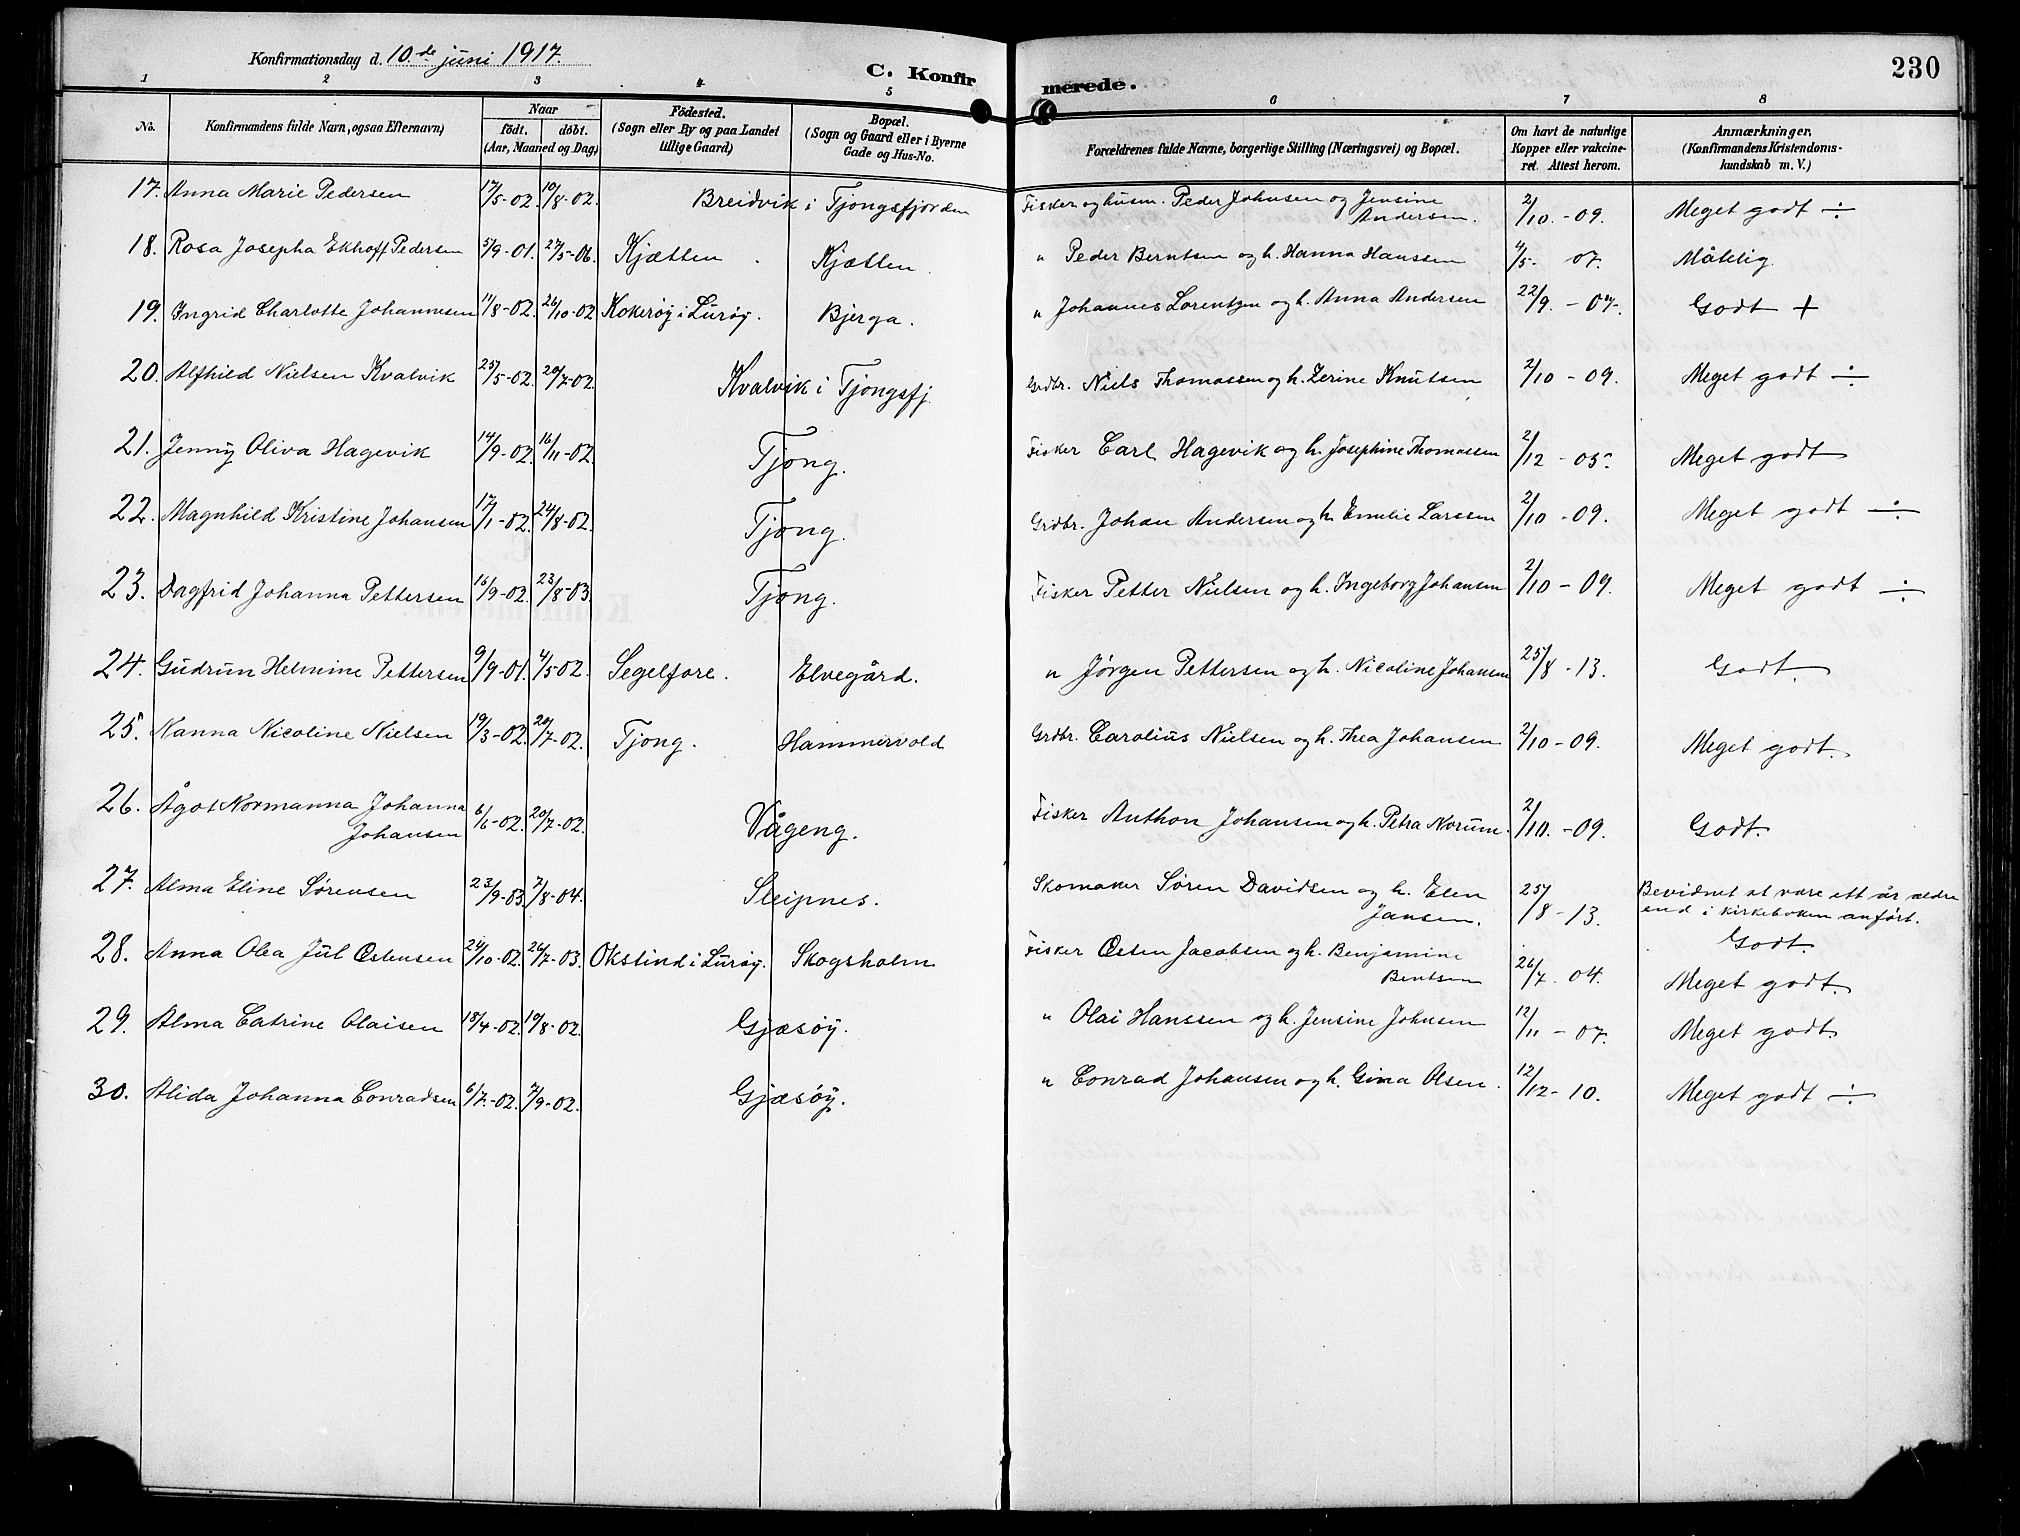 Konfirmationsdag d. 10.de juni 1917.
C. Konfirmerede.
230
1 2 3 4 5 6 7 8
No.
Konfirmandens fulde Navn, ogsaa Efternavn)
Naar
födt. döbt.
(Aar, Maaned og Dag)
Födested.
(Sogn eller By og paa Landet
tillige Gaard)
Bopæl.
(Sogn og Gaard eller i Byerne
Gade og Hus-No.
Forældrenes fulde Navne, borgerlige Stilling (Næringsvei) og Bopæl.
Om havt de naturlige
Kopper eller vakcine-
ret. Attest herom.
Anmærkninger,
(Konfirmandens Kristendoms-
kundskab m. V.)
17. Anna Marie Pedersen 17/5-02. 10/8-02. Breidvik i Tjongsfjorden Fisker og husm. Peder Johnsen og Jensine Andersen. 2/10.-09. Meget godt ÷
18. Rosa Josepha Ekhoff Pedersen 5/9-01. 27/5-06. Kjætten . Kjætten. " Peder Berntsen og h. Hanna Hanssen 4/5- 07. Måtelig
19. Ingrid Charlotte Johannesen 11/8-02. 26/10-02 Kokerøy i Lurøy. Bjerga. " Johannes Lorentzen og h. Anna Andersen 22/9. - 07. Godt +
20. Alfhild Nielsen Kvalvik 25/5-02. 20/7-02. Kvalvik i Tjongsfj. Grdbr. Niels Thomassen og h. Zerine Knutsen 2/10 - 09. Meget godt ÷
21. Jenny Oliva Hagevik 14/9-02. 16/11-02. Tjong. Fisker Carl Hagevik og h. Josephine Thomassen 2/12 - 05. Meget godt
22. Magnhild Kristine Johansen 17/1-02. 24/8-02. Tjong. Grdbr. Johan Andersen og h. Emelie Larssen 2/10 - 09. Meget godt ÷
23. Dagfrid Johanna Pettersen 16/9-02. 23/8-03. Tjong. Fisker Petter Nielsen og h. Ingeborg Johansen 2/10 - 09. Meget godt ÷
24. Gudrun Helmine Pettersen 9/9-01. 4/5-02. Segelfore. Elvegård. " Jørgen Pettersen og h. Nicoline Johansen 25/8 - 13. Godt.
25. Nanna Nicoline Nielsen 19/3-02. 20/7-02. Tjong. Hammervold Grdbr. Carolius Nielsen og h. Thea Johansen 2/10 - 09. Meget godt.
26. Ågot Normanna Johanna
Johansen 6/6-02. 20/7-02. Vågeng. Fisker Anthon Johansen og h. Petra Norum. 2/10. - 09. Godt.
27. Alma Eline Sørensen 23/9-03. 7/8-04. Sleipnes. Skomaker Søren Davidsen og h. Elen Jansen. 25/8 - 13. Bevidnet at være ett år ældre
end i kirkeboken anført.
Godt.
28. Anna Olea Jul Østensen 24/10-02. 26/7-03. Okstind i Lurøy. Skogsholm Fisker Østen Jacobsen og h. Benjamine Bentsen 26/7. 04. Meget godt.
29. Alma Catrine Olaisen 18/4-02. 19/8-02. Gjæsøy. " Olai Hanssen og h. Jensine Johnsen 12/11 - 07. Meget godt.
30. Alida Johanna Conradsen 6/7.-02. 7/9-02. Gjæsøy. " Conrad Johansen og h. Gina Olsen. 12/12 - 10. Meget godt ÷